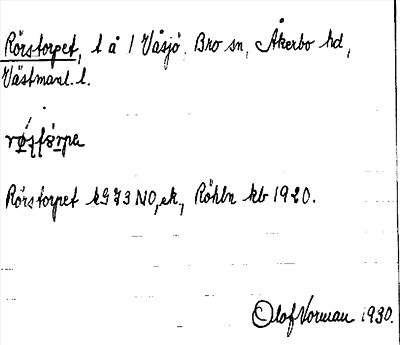 Rörstorpet, t å 1 Våsjö, Bro sn, Åkerbo hd,
Västmanl. l.
Rörstorpet k973NO, ek., Röhln kb 1920.
Olof Vorman 1930.